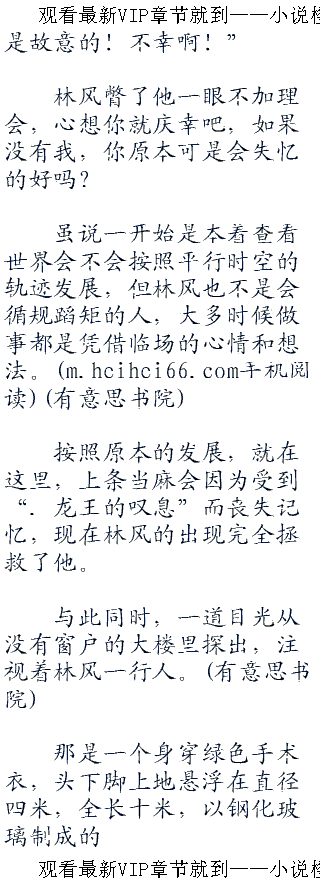 观看最新VIP章节就到——小说检
是故意的！不幸啊！”
林风瞥了他一眼不加理
会，心想你就庆幸吧，如果
没有我，你原本可是会失忆
的好吗？
虽说一开始是本着查看
世界会不会按照平行时空的
轨迹发展，但林风也不是会
循规蹈矩的人，大多时候做
事都是凭借临场的心情和想
法。(m.hcihci66.com手机阅
读)(有意思书院)
按照原本的发展，就在
这里，上条当麻会因为受到
“．龙王的叹息”而丧失记
忆，现在林风的出现完全拯
救了他。
与此同时，一道目光从
没有窗户的大楼里探出，注
视着林风一行人。(有意思书
院)
那是一个身穿绿色手术
衣，头下脚上地悬浮在直径
四米，全长十米，以钢化玻
璃制成的
观看最新VIP章节就到——小说检